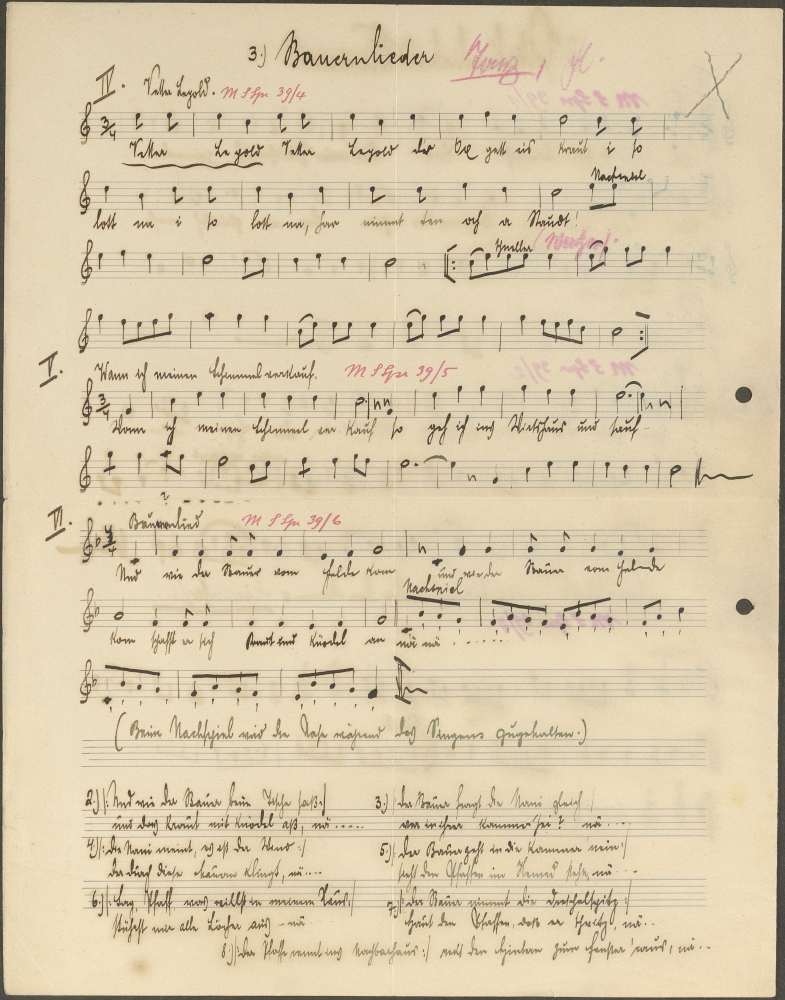 3.) Bauernlieder
IV. Vetter Lepold. M S Spr 39/4
Vetter Lepold Vetter Lepold der Ox geht eis Kraut i so
lott na i so lott na, nimmt ten och a Staudt!
Nachspiel
schneller (Walzer).
V. Wann ich meinen Schimmel verkauf. M S Spr 39/5
Wann ich meinen Schimmel verkauf so geh ich ins Wirtshaus und sauf.
?
VI. Bauernlied M S Spr 39/6
Und wie der Bauer vom Felde kom und wie der Bauer vom Felde
Nachspiel
kom schafft er sich Kraut und Knödel an nä nä .....
(Beim Nachspiel wird die Nase während des Singens zugehalten.)
2.) /: Und wie der Bauer beim Tische saß :/
und das Kraut mit Knödel aß, nä.....
3.) /: der Bauer fragt die Nani gleich :/
wer in ihrer Kammer sei? nä...
4.) /: die Nani meint, es ist der Wind :/
der durch diese klingt, nä...
5.) /: der Bauer geht in die Kammer nein :/
sieht den Pfaffen im Hemed stehn, nä...
6.) /: Sag, Pfaff was willst in meinem Haus, :/
alle Löcher aus - nä
7.) /: der Bauer nimmt die :/
haut den Pfaffen, daß er, nä..
8.) /: der Pfaffe rennt ins Nachbarhaus :/ mit den Hintern zum Fenster 'raus, nä..